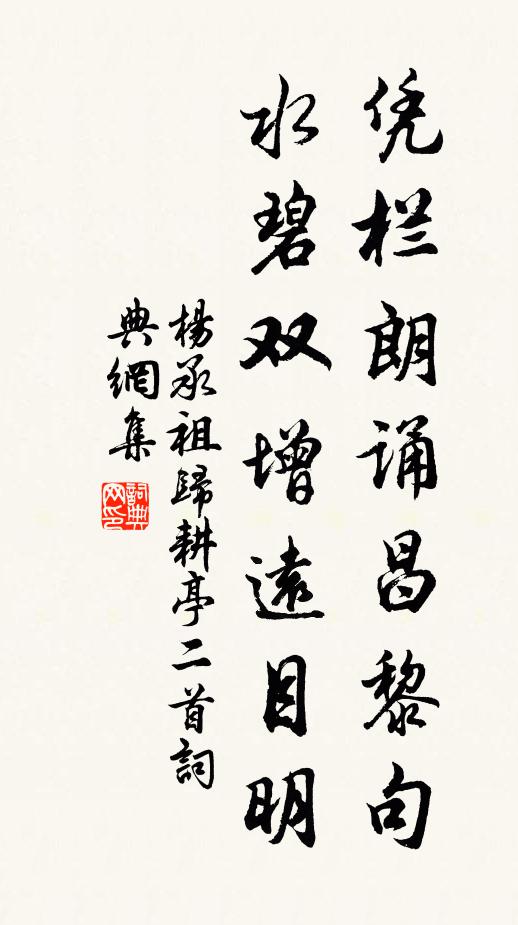 凭栏朗诵昌黎句
水碧双增遠目明
楊承祖歸耕亭二首詞
典網集
詞典网印